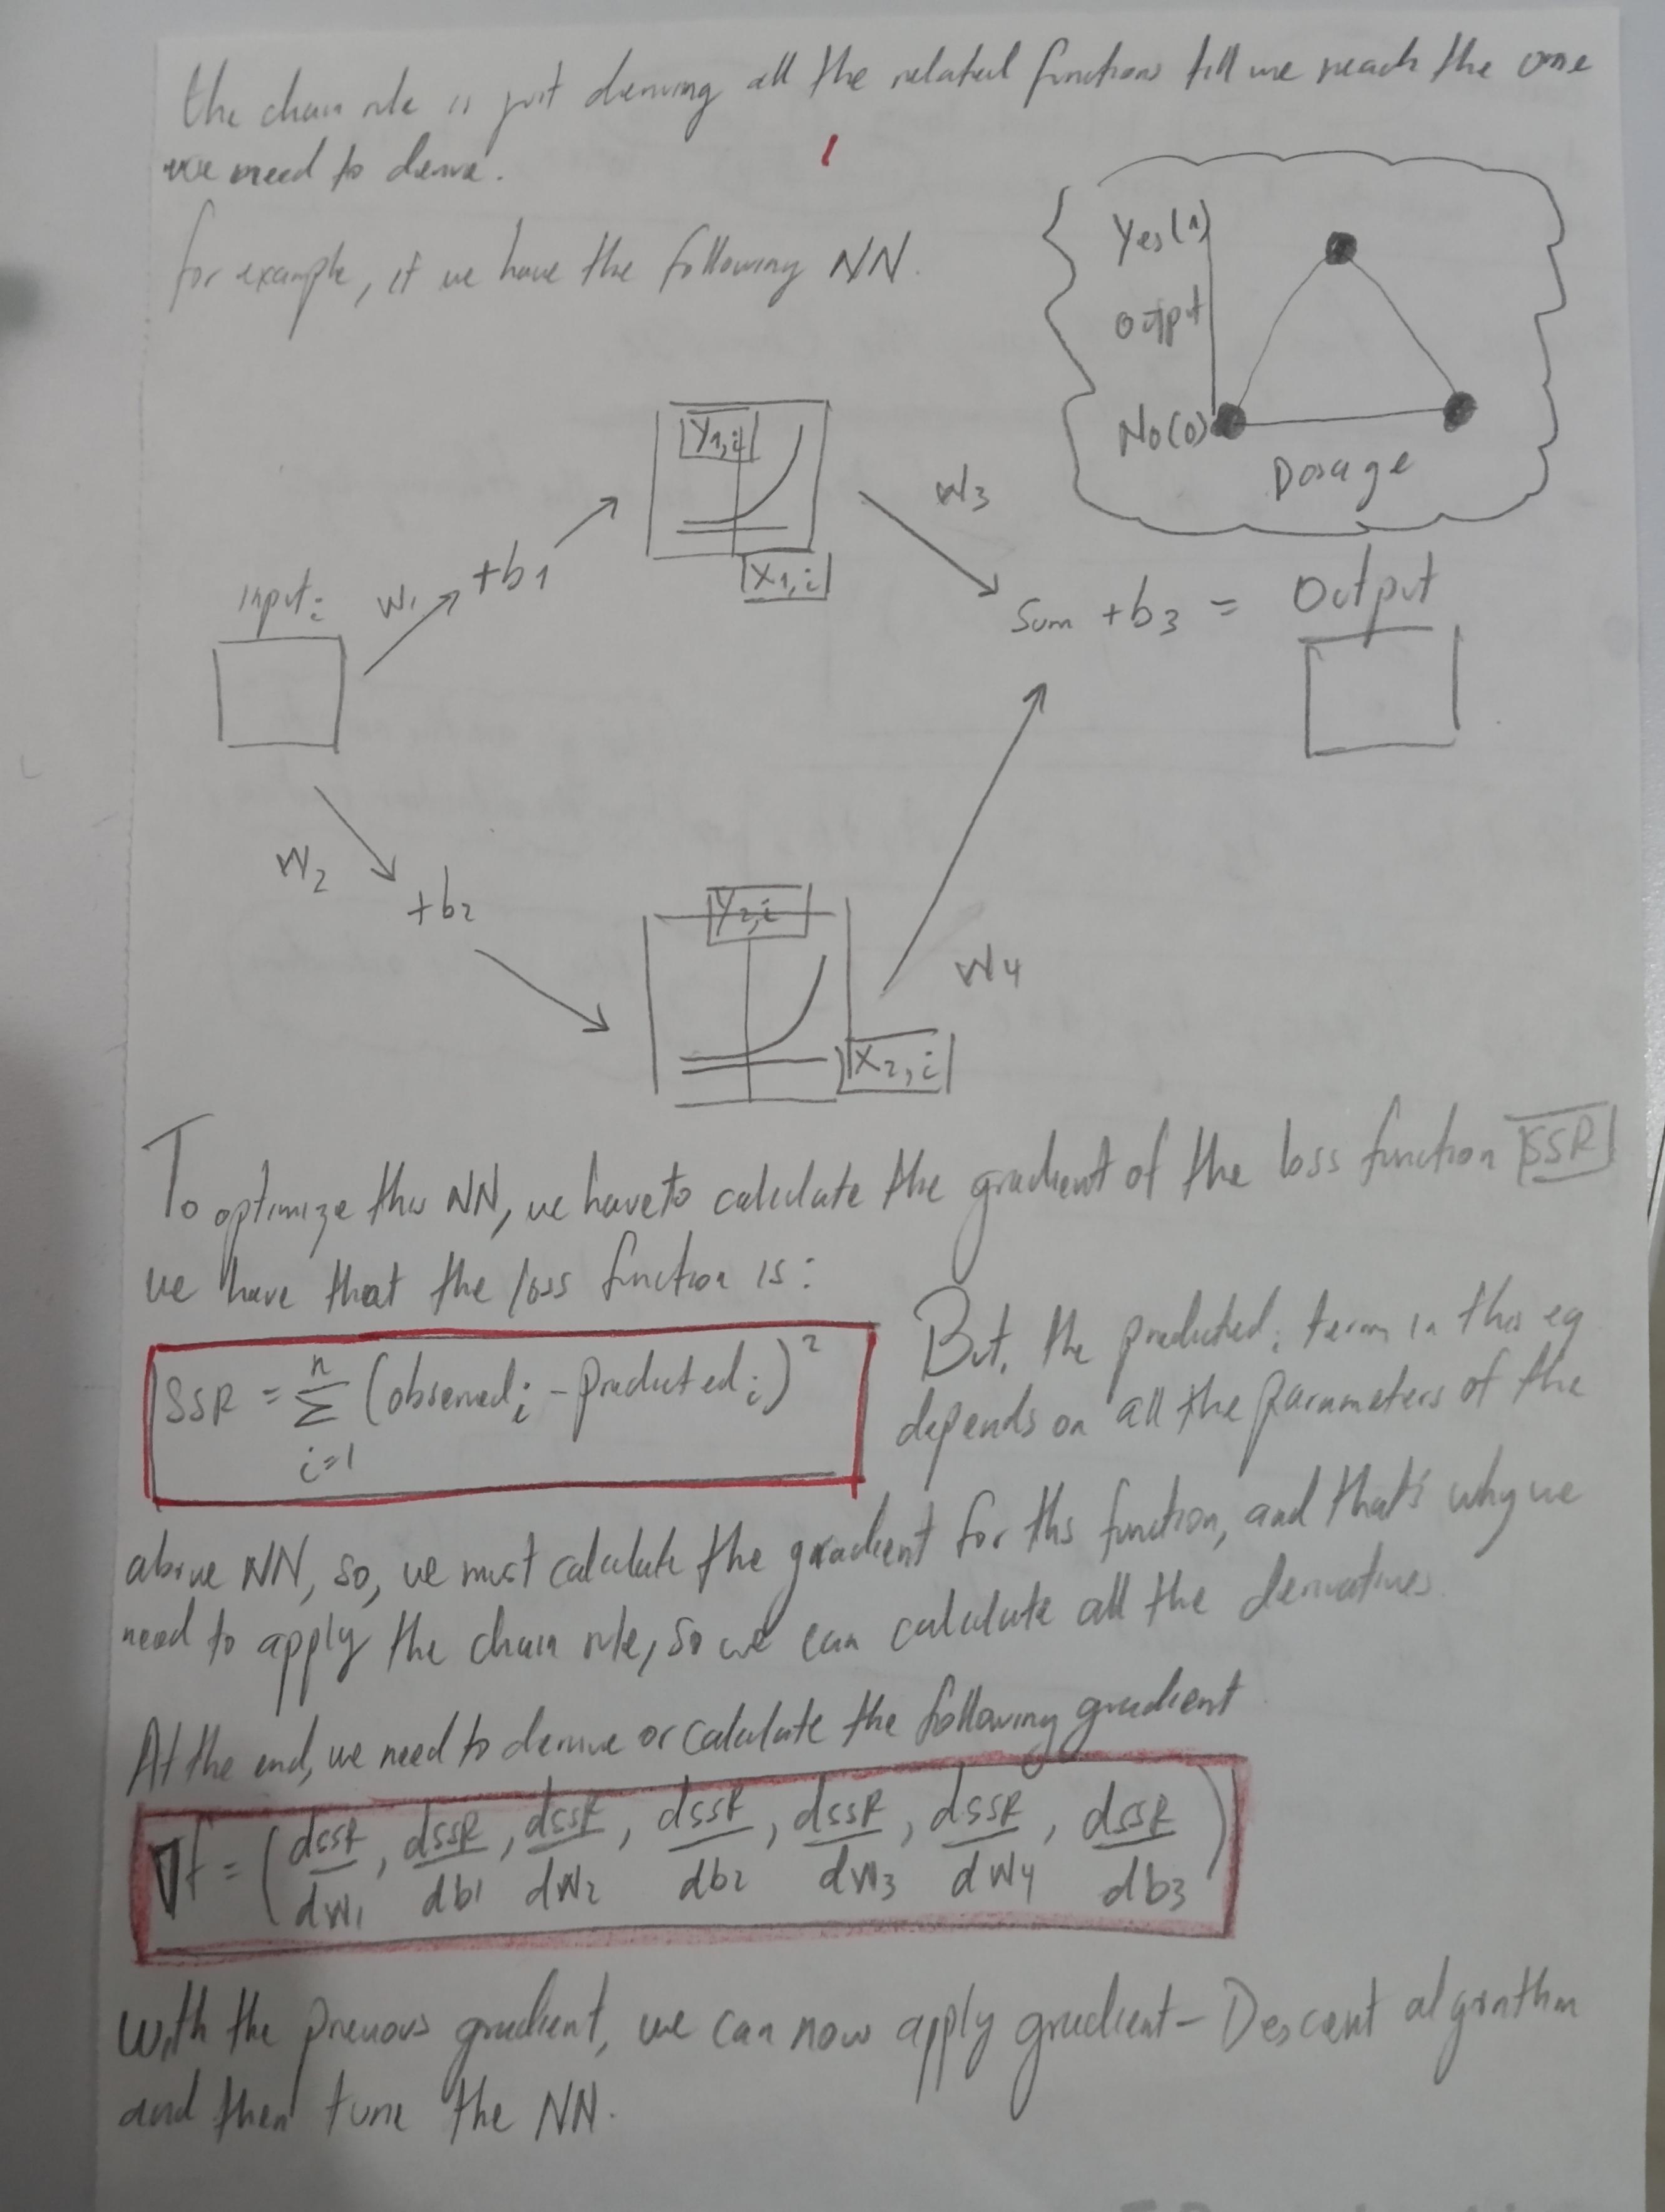 the chain rule is just deriving all the related functions till we reach the one
we need to derive.
for example, if we have the following NN.
Yes(1)
Output
No(0)
Dosage
Y1,i
X1,i
W3
Input:
W1
+b1
Sum +b3 = Output
W2
+b2
Y2,i
X2,i
W4
To optimize this NN, we have to calculate the gradient of the loss function SSR
we have that the loss function is:
SSR = n Σ i=1 (observed i - predicted i)²
But, the predicted i term in this eq
depends on all the parameters of the
above NN, so, we must calculate the gradient for this function, and that's why we
need to apply the chain rule, so we can calculate all the derivatives.
At the end, we need to derive or calculate the following gradient
∇f = (dSSR/dW1, dSSR/db1, dSSR/dW2, dSSR/db2, dSSR/dW3, dSSR/dW4, dSSR/db3)
With the previous gradient, we can now apply gradient-Descent algorithm
and then tune the NN.